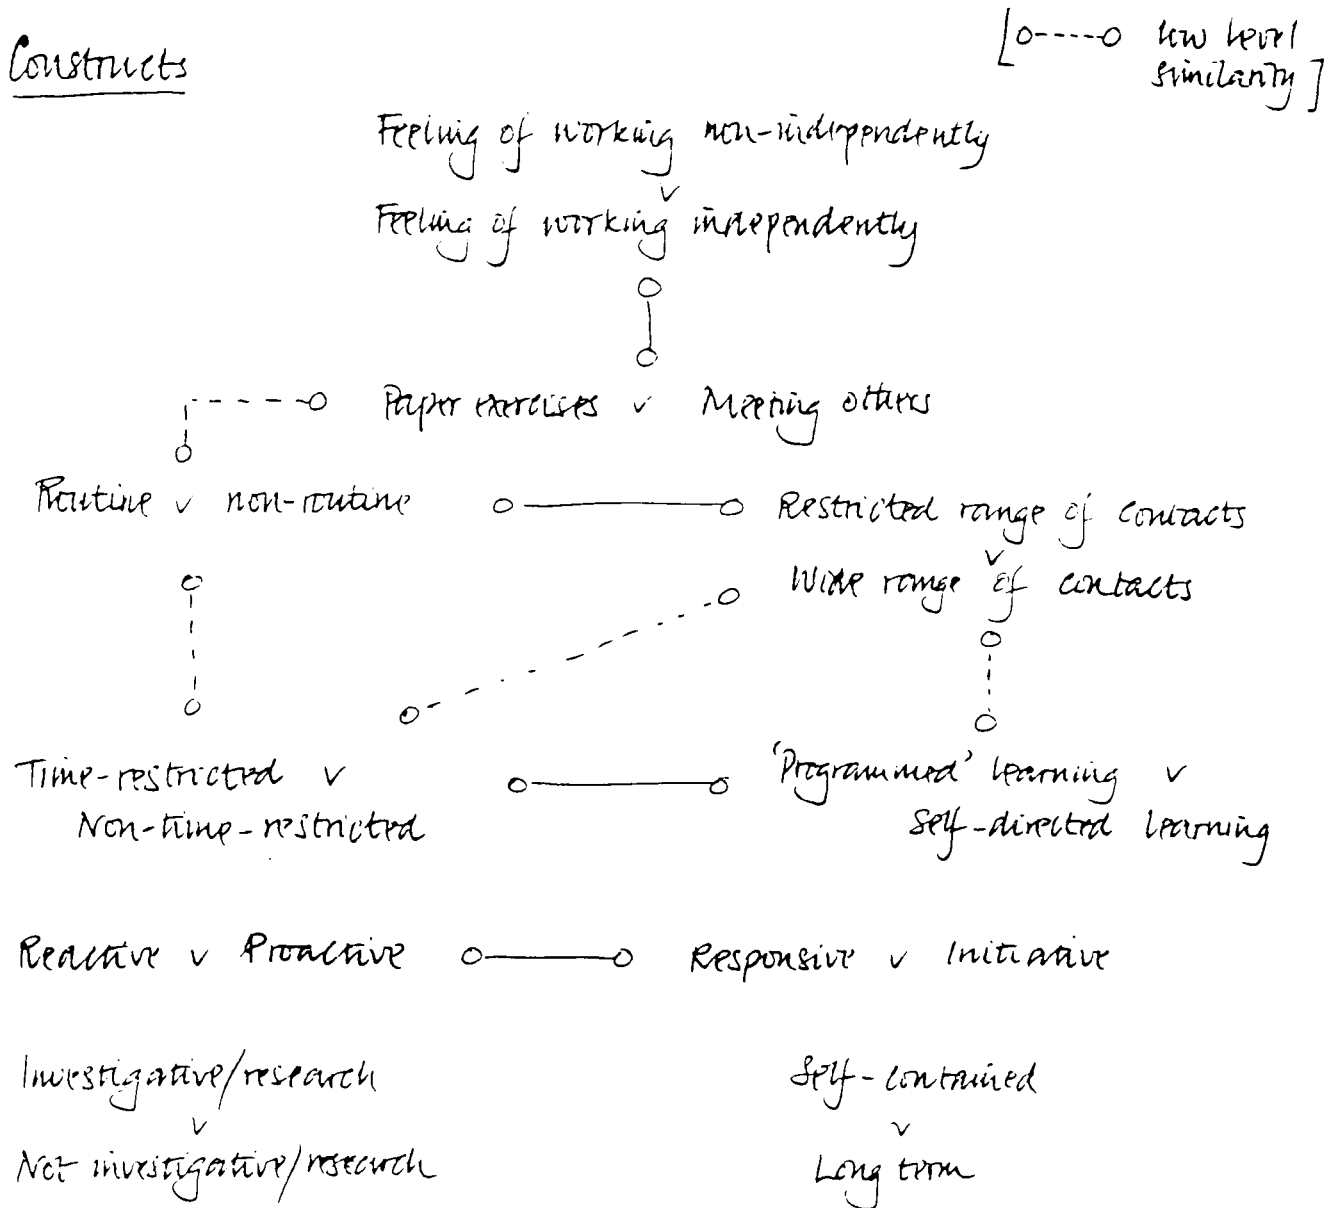 Constructs
[o-----o low level
similarity]
Feeling of working non-independently
v
Feeling of working independently
Paper exercises v Meeting others
Routine v non-routine
Restricted range of contacts
v
Wide range of contacts
Time-restricted v
Non-time-restricted
'Programmed' learning v
Self-directed learning
Reactive v Proactive
Responsive v Initiative
Investigative/research
v
Not investigative/research
Self-contained
v
Long term